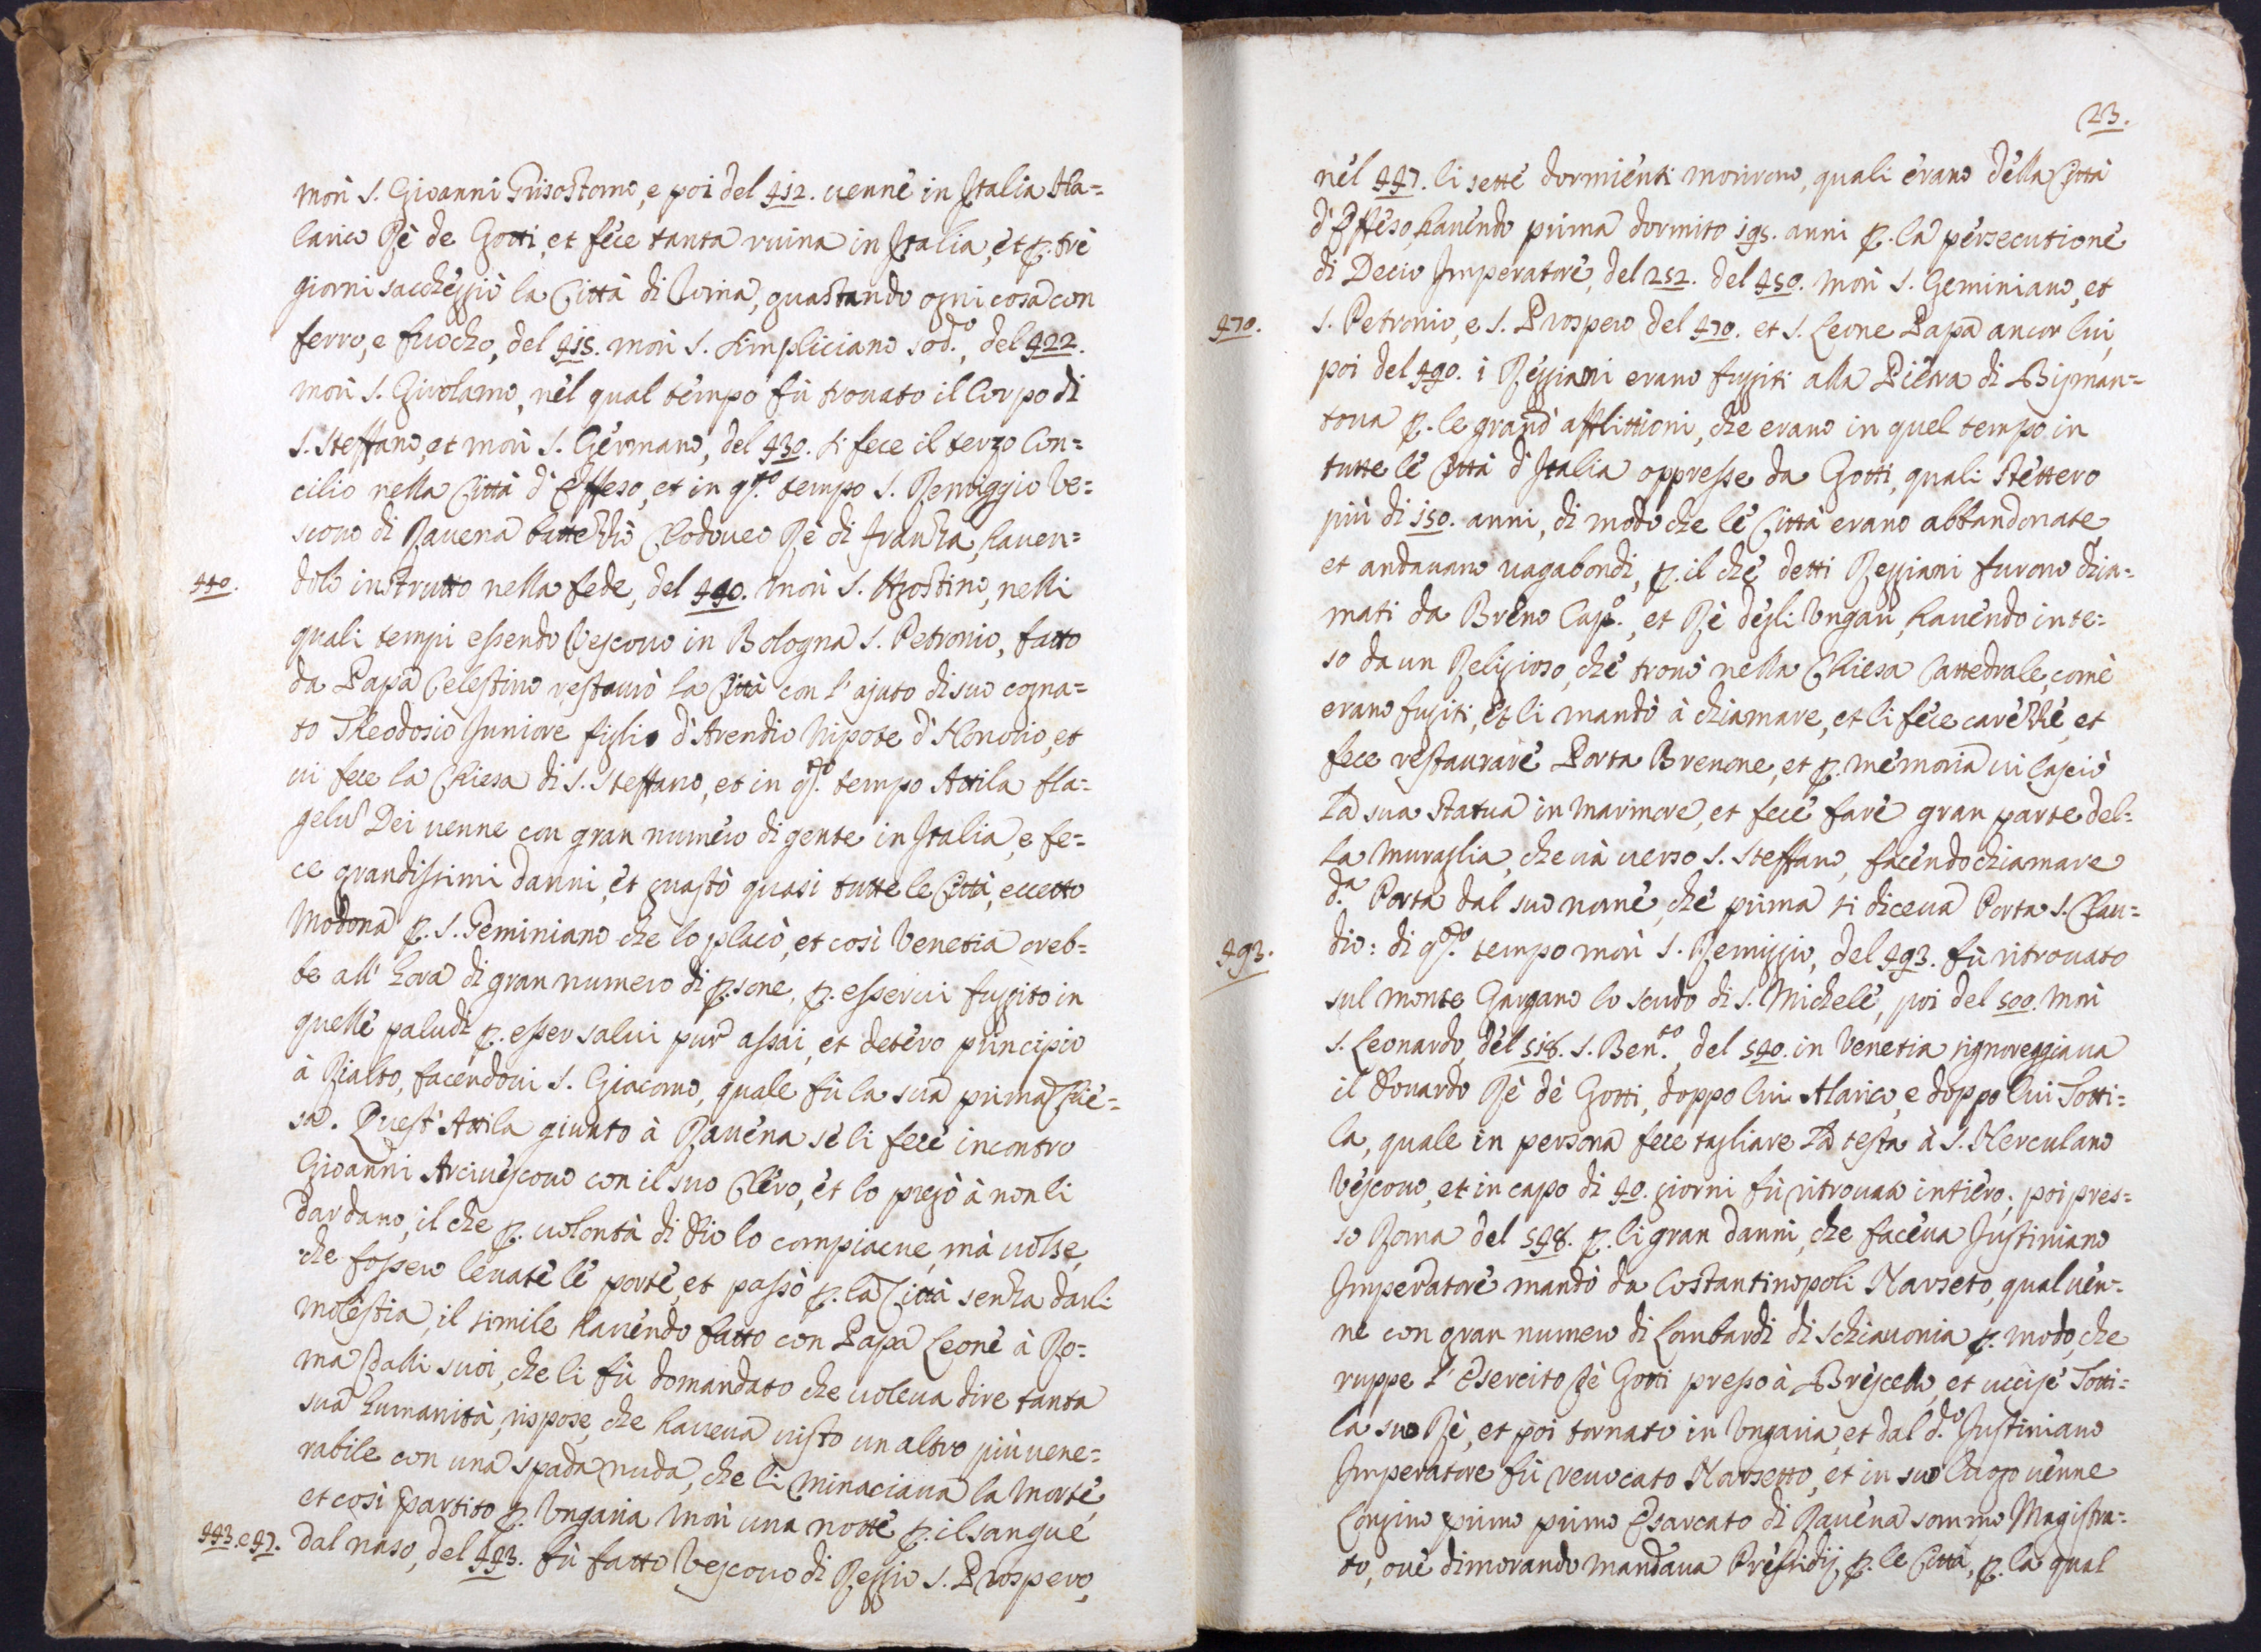 morì S. Giovanni Grisostomo, e poi del 412. venne in Italia Ala=
larico Rè de Gotti, et fece tanta ruina in Italia, et p. trè
giorni saccheggiò la Città di Roma, guastando ogni cosa con
ferro, e fuocho, del 415. morì S. Simpliciano sod.º, del 422.
morì S. Girolamo, nel qual tempo fù trouato il Corpo di
S. Steffano, et morì S. Germano, del 430. si fece il terzo Con=
cilio nella Città d'Effeso, et in q.sto tempo S. Remiggio Ve=
scouo di Rauena battezzò Clodoueo Rè di Franza, hauen=
440. dolo instrutto nella fede, del 440. morì S. Agostino, nelli
quali tempi essendo Vescouo in Bologna S. Petronio, fatto
da Papa Celestino restaurò la Città con l'ajuto di suo cogna=
to Theodosio Juniore figlio d'Arendio Nipote d'Honorio, et
ui fece la Chiesa di S. Steffano, et in q.sto tempo Attila fla=
gelu Dei uenne con gran numero di gente in Italia, e fe=
ce grandissimi danni, et guastò quasi tutte le Città, eccetto
Modona p. S. Geminiano che lo placò, et così Venetia creb=
be all'hora di gran numero di p.sone, p. esserui fuggito in
quelle paludi p. esser salui pur assai, et detero principio
à Rialto, facendoui S. Giacomo, quale fù la sua prima Chie=
sa. Quest'Attila giunto à Rauena se li fece incontro
Giovanni Arciuescouo con il suo Clero, et lo pregò à non li
dar dano, il che p. uolontà di Dio lo compiacue, mà uolse,
che fossero leuate le porte, et passò p. la Città senza darli
molestia, il simile hauendo fatto con Papa Leone à Ro=
ma dalli suoi, che li fù domandato che uoleua dire tanta
sua humanità, rispose, che haueua uisto un altro più uene=
rabile con una spada nuda, che li minaciaua la morte,
et così partito p. Ungaria morì una notte p. il sangue
443. e 47. dal naso, del 443. fù fatto Vescouo di Reggio S. Prospero,
23.
nel 447. li sette dormienti morirono, quali erano della Città
d'Effeso, hauendo prima dormito 195. anni p. la persecutione
di Decio Imperatore, del 252. del 450. morì S. Geminiano, et
470. S. Petronio, e S. Prospero del 470. et S. Leone Papa ancor lui,
poi del 490. i Reggiani erano fuggiti alla Pietra di Bisman=
toua p. le grand'afflittioni, che erano in quel tempo in
tutte le Città d'Italia oppresse da Gotti, quali stettero
più di 150. anni, di modo che le Città erano abbandonate,
et andauano uagabondi, p. il che detti Reggiani furono chia=
mati da Breno Cap.º, et Rè degli Ungari, hauendo inte=
so da un Religioso, che trouò nella Chiesa Cattedrale, come
erano fugiti, et li mandò à chiamare, et li fece carezze, et
fece restaurare Porta Brenone, et p. memoria ui lasciò
la sua statua in marmore, et fece fare gran parte del=
la muraglia, che uà uerso S. Steffano, facendo chiamare
d.ª Porta dal suo nome, che prima si diceua Porta S. Clau=
493. dio: di q.sto tempo morì S. Remiggio, del 493. fù ritrouato
sul monte Gargano lo scudo di S. Michele, poi del 500. morì
S. Leonardo, del 518. S. Ben.to, del 540. in Venetia signoreggiaua
il Douardo Rè dè Gotti, doppo lui Alarico, e doppo lui Totti=
la, quale in persona fece tagliare la testa à S. Herculano
Vescouo, et in capo di 40. giorni fù ritrouato intiero; poi pres=
so Roma del 548. p. li gran danni, che faceua Justiniano
Imperatore mandò da Costantinopoli Narseto, qual uen=
ne con gran numero di Lombardi di Schiauonia p. modo, che
ruppe l'Esercito dè Gotti presso à Brescello, et uccise Totti=
la suo Rè, et poi tornato in Ungaria, et dal d.º Justiniano
Imperatore fù reuocato Narsetto, et in suo luogo uenne
Longino primo primo Esarcato di Rauena sommo Magistra=
to, oue dimorando mandaua Pressidij p. le Città, p. la qual